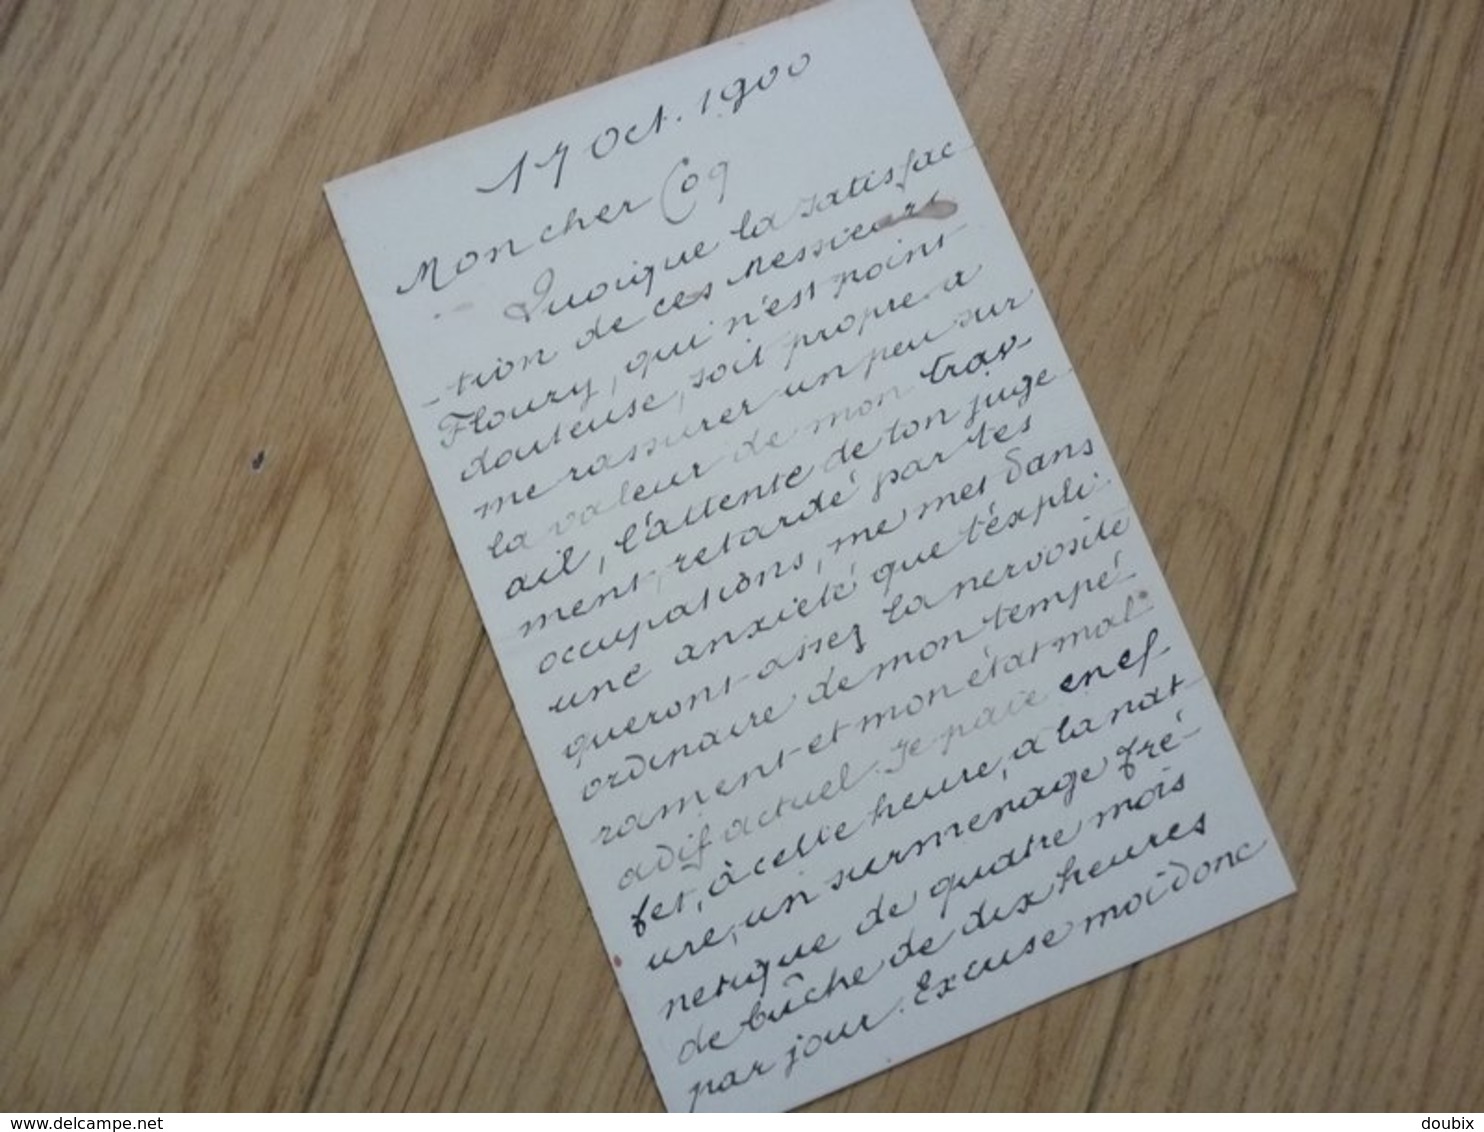 17 Oct. 1900
Mon cher Coq
Quoique la satisfac
-tion de ces Messieurs
Floury, qui n'est point
douteuse, soit propre a
me rassurer un peu sur
la valeur de mon trav-
ail, l'attente de ton juge
ment, retardé par tes
occupations, me met dans
une anxieté que t'éxpli-
queront assez la nervosité
ordinaire de mon tempé-
rament et mon état mal-
adif actuel. Je paie en ef-
fet, à cette heure, à la nat
ure, un surmenage fré-
netique de quatre mois
de bûche de dix heures
par jour. Excuse moi donc
© delcampe.net
doubix